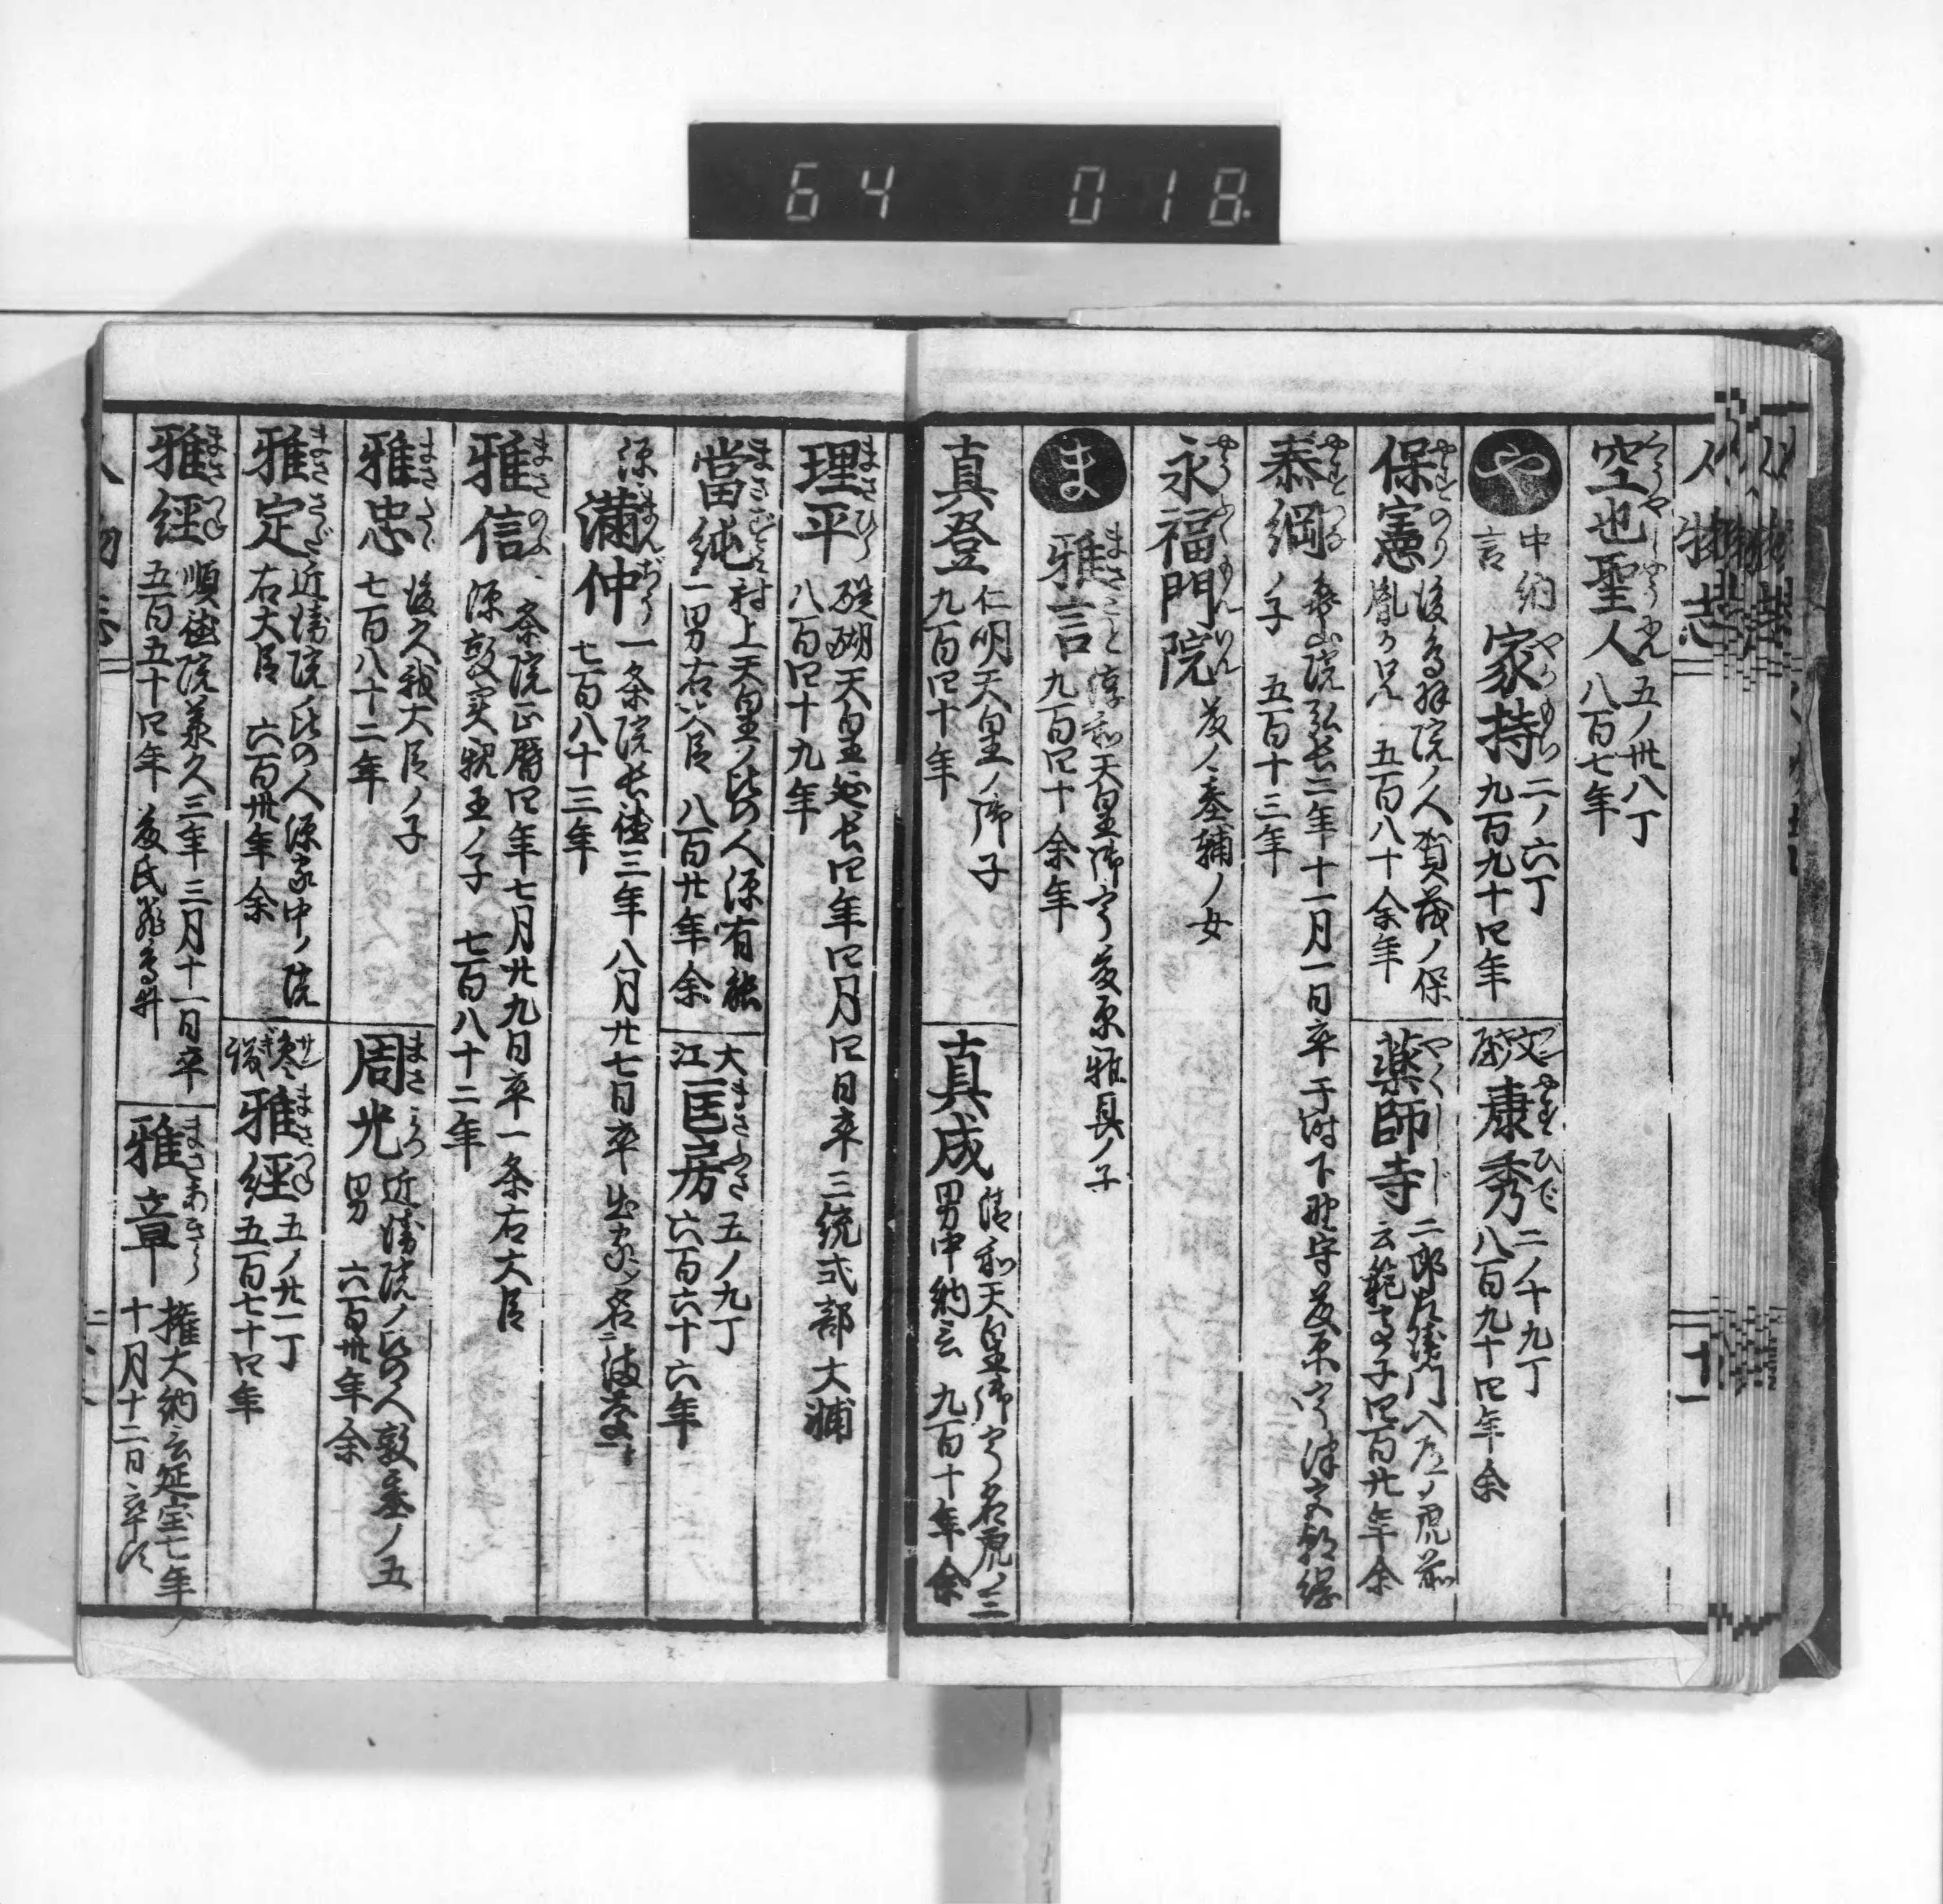 64 018
人物志
十一
空也聖人 五ノ卅八丁
八百七年
や
中納言
家持 二ノ六丁
九百九十四年
文屋
康秀 二ノ十九丁
八百九十四年余
保憲 後鳥羽院ノ人賀茂ノ保
胤カ兄 五百八十余年
薬師寺 二郎左衛門入道ノ虎前
四百廿年余
泰綱 亀山院弘長二年十一月一日卒于時下野守
ノ子 五百十三年
永福門院 基輔ノ女
ま
雅言 淳和天皇御宇 雅具ノ子
九百四十余年
真登 仁明天皇ノ御子
九百四十年
真成 清和天皇御宇名虎ノ三
男中納言 九百十年余
理平 醍醐天皇延長四年四月四日卒三統式部大輔
八百四十九年
當純 村上天皇ノ比の人源有能
一男右大臣 八百廿年余
大江
匡房 五ノ九丁
六百六十六年
源
満仲 一条院長徳三年八月廿七日卒出家シ名
七百八十三年
雅信 一条院正暦四年七月廿九日卒一条右大臣
源敦実親王ノ子 七百八十二年
雅忠 後久我大臣ノ子
七百八十二年
周光 近衛院ノ比の人敦基ノ五
男 六百卅年余
雅定 近衛院ノ比の人源家中ノ院
右大臣 六百卅年余
参議
雅經 五ノ廿一丁
五百七十四年
雅經 順徳院承久三年三月十一日卒
五百五十四年
雅章 権大納言延宝七年ノ
十月十二日卒